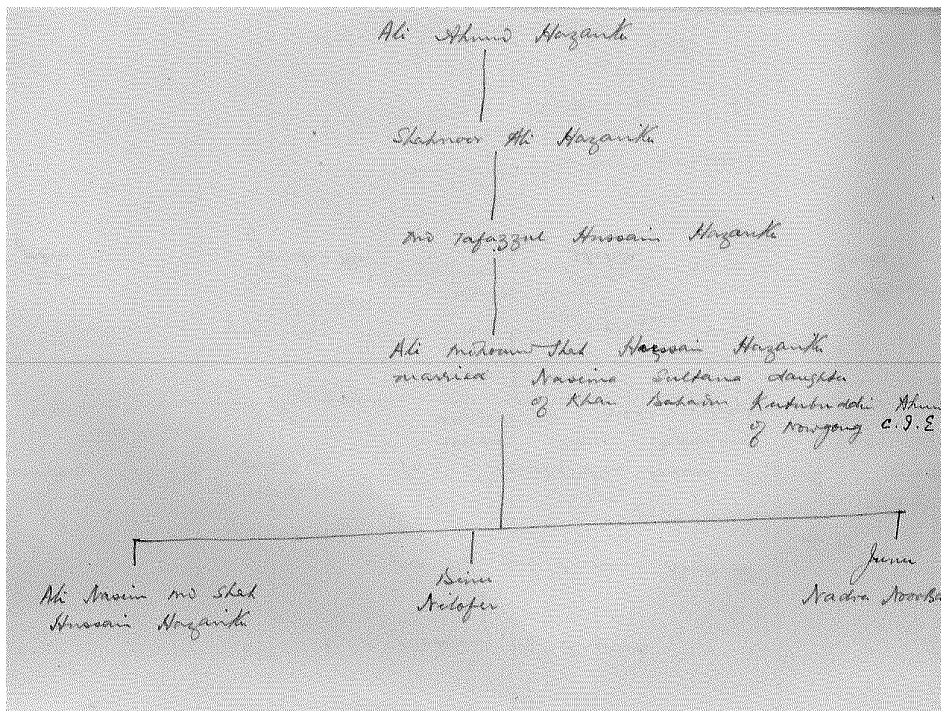 Ali Ahmed Hazarika
Shahnoor Ali Hazarika
Md Tafazzul Hussain Hazarika
Ali Shah Hussain Hazarika
married Nasima Sultana daughter
of Khan Bahadur Kutubuddin Ahm
of Nowgong C.I.E
Ali Nasim Md Shah
Hussain Hazarika
Binu
Nilofer
Junu
Nadra NoorBa